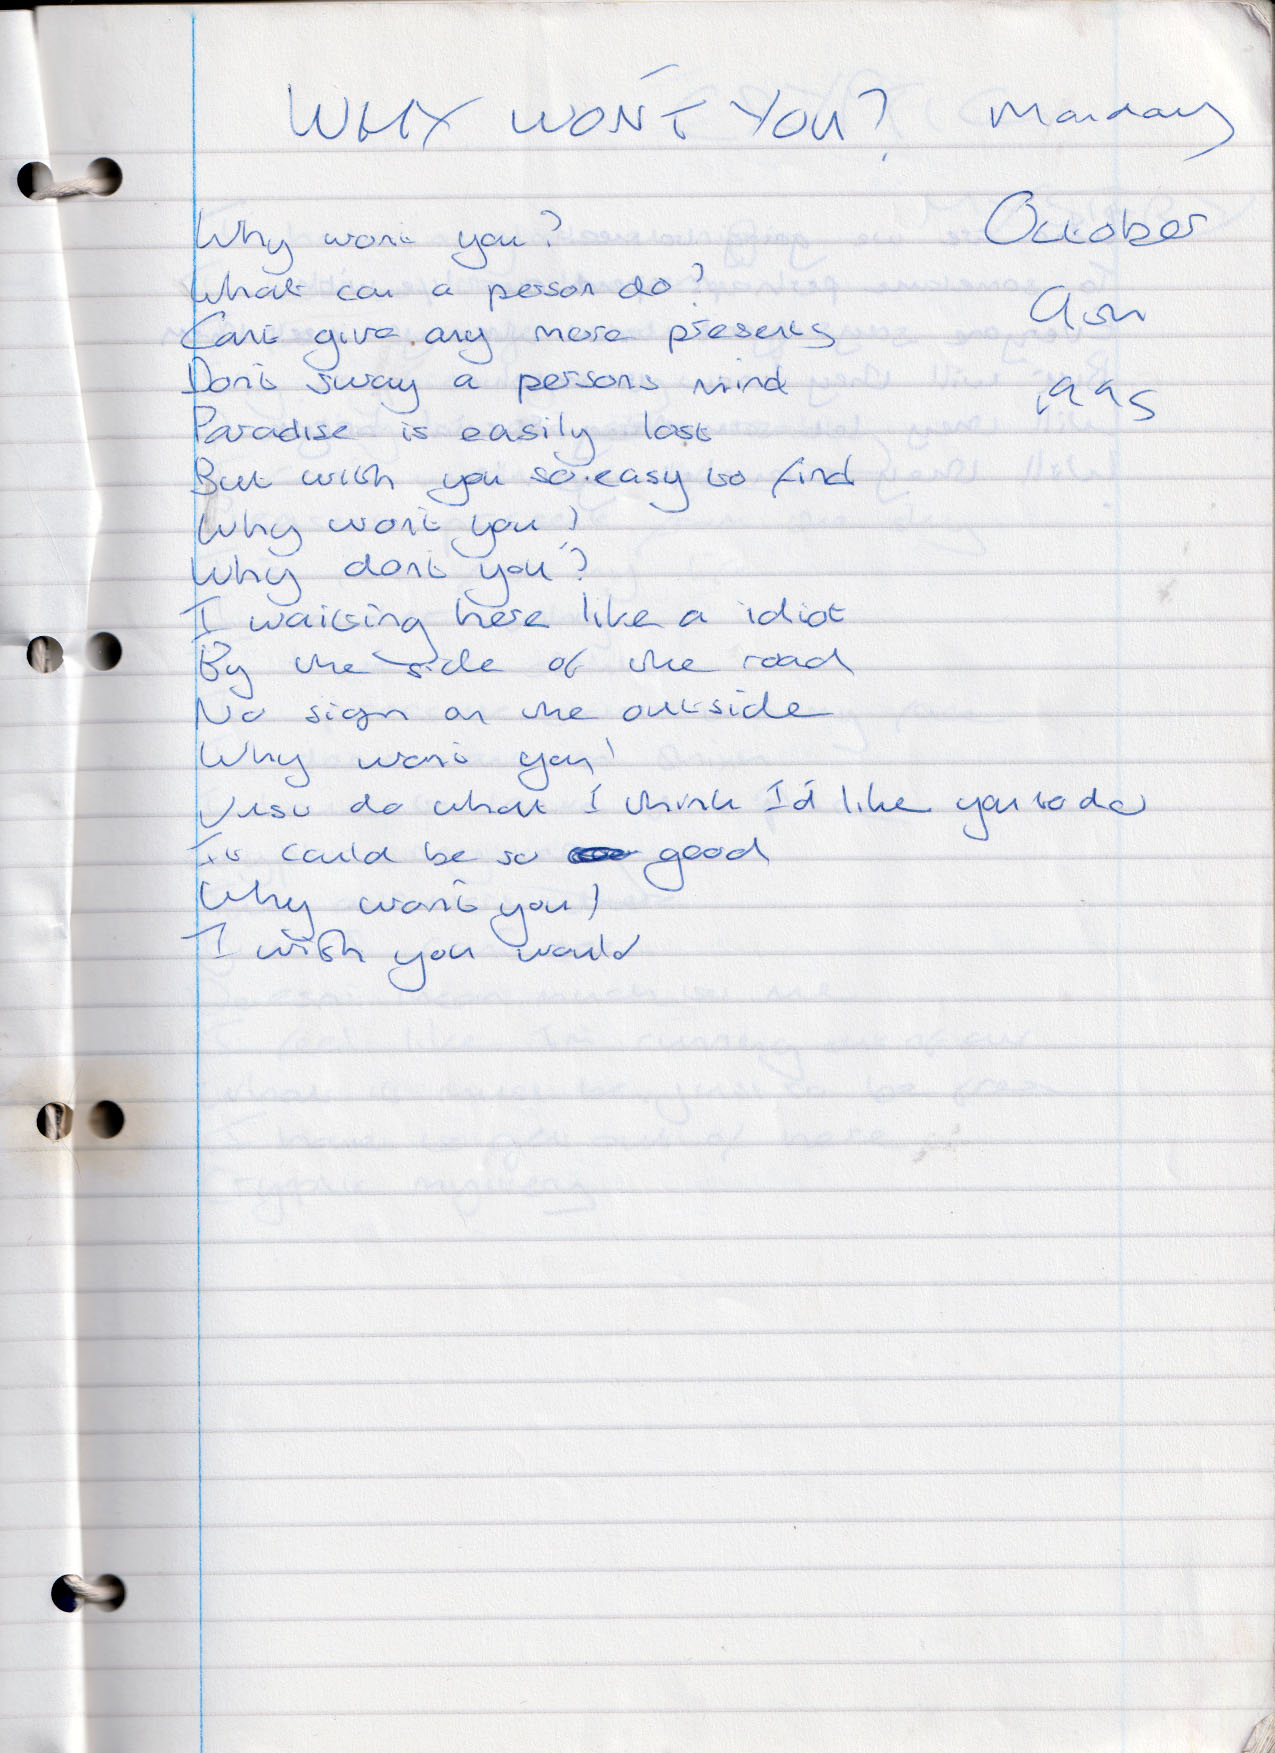 WHY WON'T YOU? Monday
October
9th
1995
Why won't you?
What can a person do?
Can't give any more presents
Don't sway a persons mind
Paradise is easily lost
But with you so easy to find
Why won't you?
Why don't you?
I waiting here like a idiot
By the side of the road
No sign on the outside
Why won't you?
Just do what I think I'd like you to do
It could be so good
Why won't you?
I wish you would